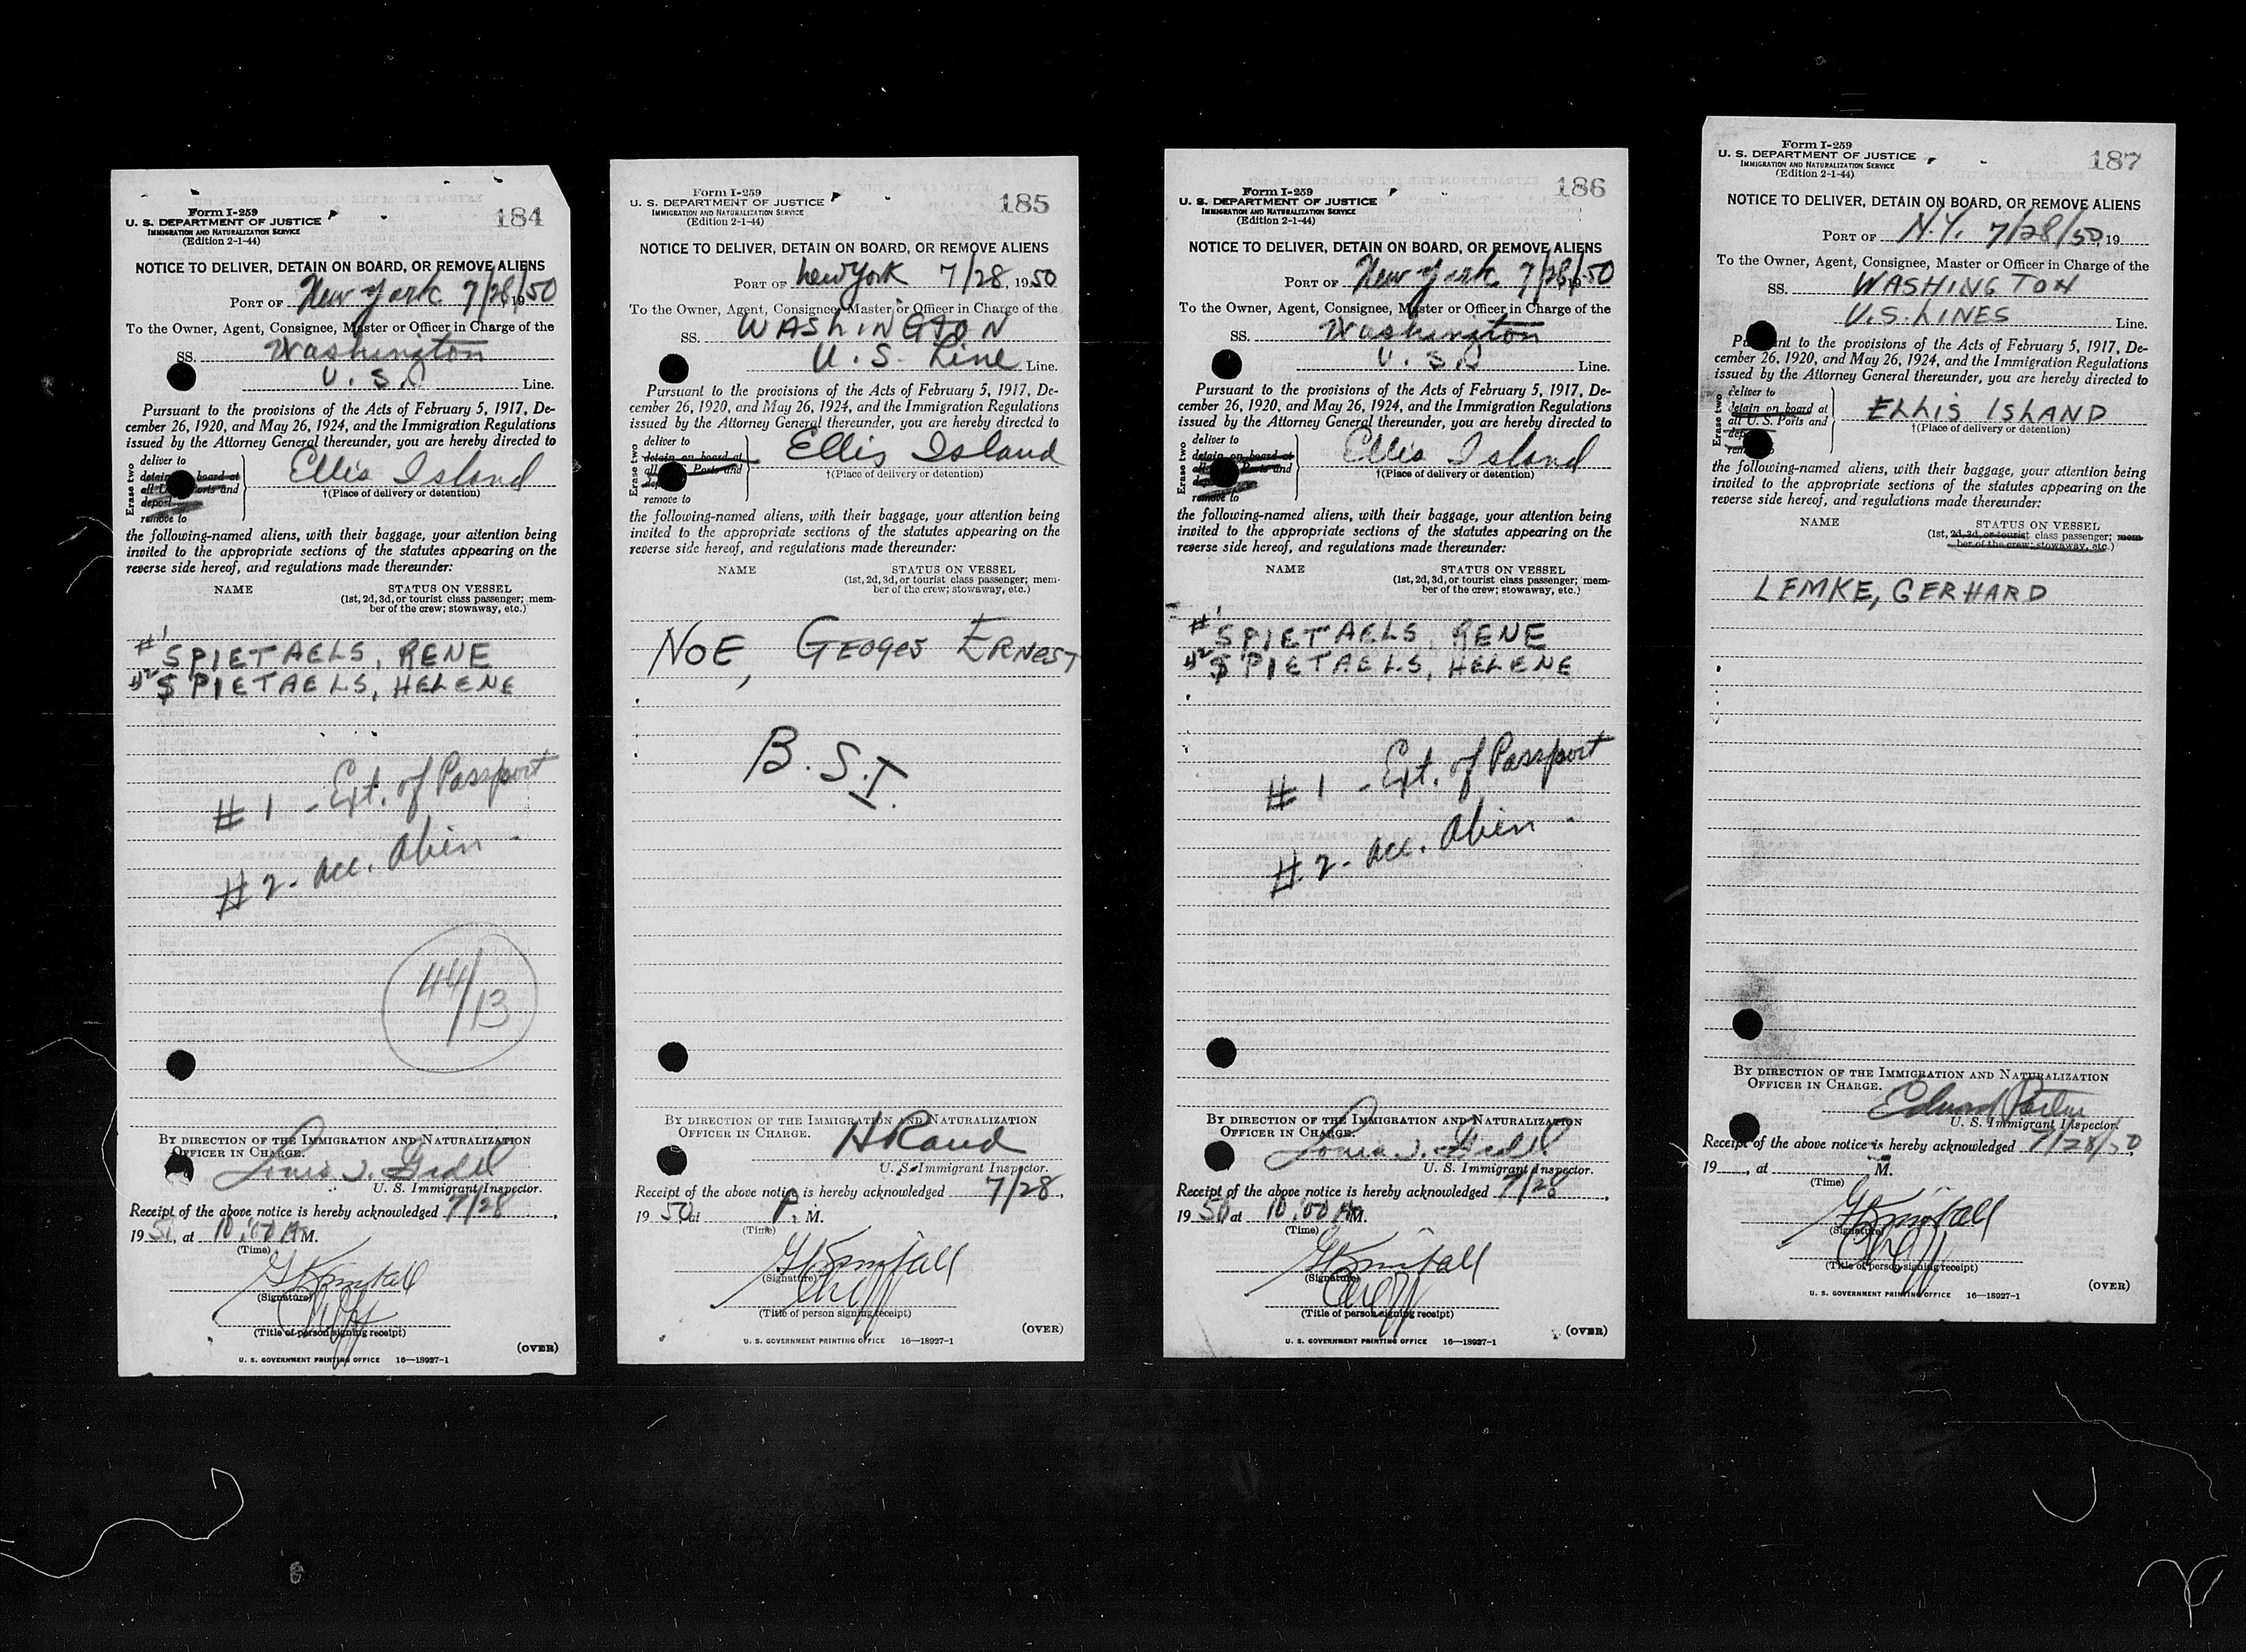 Form I-259
U. S. DEPARTMENT OF JUSTICE
IMMIGRATION AND NATURALIZATION SERVICE
(Edition 2-1-44)
184
NOTICE TO DELIVER, DETAIN ON BOARD, OR REMOVE ALIENS
PORT OF New York 7/28, 1950
To the Owner, Agent, Consignee, Master or Officer in Charge of the
SS. Washington
U. S. Line.
Pursuant to the provisions of the Acts of February 5, 1917, De-
cember 26, 1920, and May 26, 1924, and the Immigration Regulations
issued by the Attorney General thereunder, you are hereby directed to
Erase two
deliver to
detain on board at
all U. S. Ports and
deport
remove to
Ellis Island
†(Place of delivery or detention)
the following-named aliens, with their baggage, your attention being
invited to the appropriate sections of the statutes appearing on the
reverse side hereof, and regulations made thereunder:
NAME STATUS ON VESSEL
(1st, 2d, 3d, or tourist class passenger; mem-
ber of the crew; stowaway, etc.)
#1 SPIETAELS, RENE
#2 SPIETAELS, HELENE
#1 - Ext. of Passport
#2 - Acc. Alien -
44/13
BY DIRECTION OF THE IMMIGRATION AND NATURALIZATION
OFFICER IN CHARGE.
Louis J.
U. S. Immigrant Inspector.
Receipt of the above notice is hereby acknowledged 7/28,
1950, at 10:00 A M.
(Time)
(Signature)
(Title of person signing receipt)
(OVER)
U. S. GOVERNMENT PRINTING OFFICE 16—18927-1
Form I-259
U. S. DEPARTMENT OF JUSTICE
IMMIGRATION AND NATURALIZATION SERVICE
(Edition 2-1-44)
185
NOTICE TO DELIVER, DETAIN ON BOARD, OR REMOVE ALIENS
PORT OF New York 7/28, 1950
To the Owner, Agent, Consignee, Master or Officer in Charge of the
SS. WASHINGTON
U. S. Line Line.
Pursuant to the provisions of the Acts of February 5, 1917, De-
cember 26, 1920, and May 26, 1924, and the Immigration Regulations
issued by the Attorney General thereunder, you are hereby directed to
Erase two
deliver to
detain on board at
all Ports and
remove to
Ellis Island
†(Place of delivery or detention)
the following-named aliens, with their baggage, your attention being
invited to the appropriate sections of the statutes appearing on the
reverse side hereof, and regulations made thereunder:
NAME STATUS ON VESSEL
(1st, 2d, 3d, or tourist class passenger; mem-
ber of the crew; stowaway, etc.)
NOE, GEOgES ERNEST
B.S.I.
BY DIRECTION OF THE IMMIGRATION AND NATURALIZATION
OFFICER IN CHARGE.
H Rand
U. S. Immigrant Inspector.
Receipt of the above notice is hereby acknowledged 7/28,
1950 at P. M.
(Time)
(Signature)
(Title of person signing receipt)
(OVER)
U. S. GOVERNMENT PRINTING OFFICE 16—18927-1
Form I-259
U. S. DEPARTMENT OF JUSTICE
IMMIGRATION AND NATURALIZATION SERVICE
(Edition 2-1-44)
186
NOTICE TO DELIVER, DETAIN ON BOARD, OR REMOVE ALIENS
PORT OF New York 7/28/50
To the Owner, Agent, Consignee, Master or Officer in Charge of the
SS. Washington
U. S. Line.
Pursuant to the provisions of the Acts of February 5, 1917, De-
cember 26, 1920, and May 26, 1924, and the Immigration Regulations
issued by the Attorney General thereunder, you are hereby directed to
Erase two
deliver to
detain on board at
all Ports and
remove to
Ellis Island
†(Place of delivery or detention)
the following-named aliens, with their baggage, your attention being
invited to the appropriate sections of the statutes appearing on the
reverse side hereof, and regulations made thereunder:
NAME STATUS ON VESSEL
(1st, 2d, 3d, or tourist class passenger; mem-
ber of the crew; stowaway, etc.)
#1 SPIETAELS, RENE
#2 SPIETAELS, HELENE
#1 - Ext. of Passport
#2 - Acc. Alien -
BY DIRECTION OF THE IMMIGRATION AND NATURALIZATION
OFFICER IN CHARGE.
Louis J.
U. S. Immigrant Inspector.
Receipt of the above notice is hereby acknowledged 7/28,
1950, at 10:00 A M.
(Time)
(Signature)
(Title of person signing receipt)
(OVER)
U. S. GOVERNMENT PRINTING OFFICE 16—18927-1
Form I-259
U. S. DEPARTMENT OF JUSTICE
IMMIGRATION AND NATURALIZATION SERVICE
(Edition 2-1-44)
187
NOTICE TO DELIVER, DETAIN ON BOARD, OR REMOVE ALIENS
PORT OF N.Y. 7/28/50, 19
To the Owner, Agent, Consignee, Master or Officer in Charge of the
SS. WASHINGTON
U.S. LINES Line.
Pursuant to the provisions of the Acts of February 5, 1917, De-
cember 26, 1920, and May 26, 1924, and the Immigration Regulations
issued by the Attorney General thereunder, you are hereby directed to
Erase two
deliver to
detain on board at
all U. S. Ports and
ELLIS ISLAND
†(Place of delivery or detention)
the following-named aliens, with their baggage, your attention being
invited to the appropriate sections of the statutes appearing on the
reverse side hereof, and regulations made thereunder:
NAME STATUS ON VESSEL
(1st, 2d, 3d, or tourist class passenger; mem-
ber of the crew; stowaway, etc.)
LEMKE, GERHARD
BY DIRECTION OF THE IMMIGRATION AND NATURALIZATION
OFFICER IN CHARGE.
Edward
U. S. Immigrant Inspector.
Receipt of the above notice is hereby acknowledged 7/28/50
19, at M.
(Time)
(Signature)
(Title of person signing receipt)
(OVER)
U. S. GOVERNMENT PRINTING OFFICE 16—18927-1